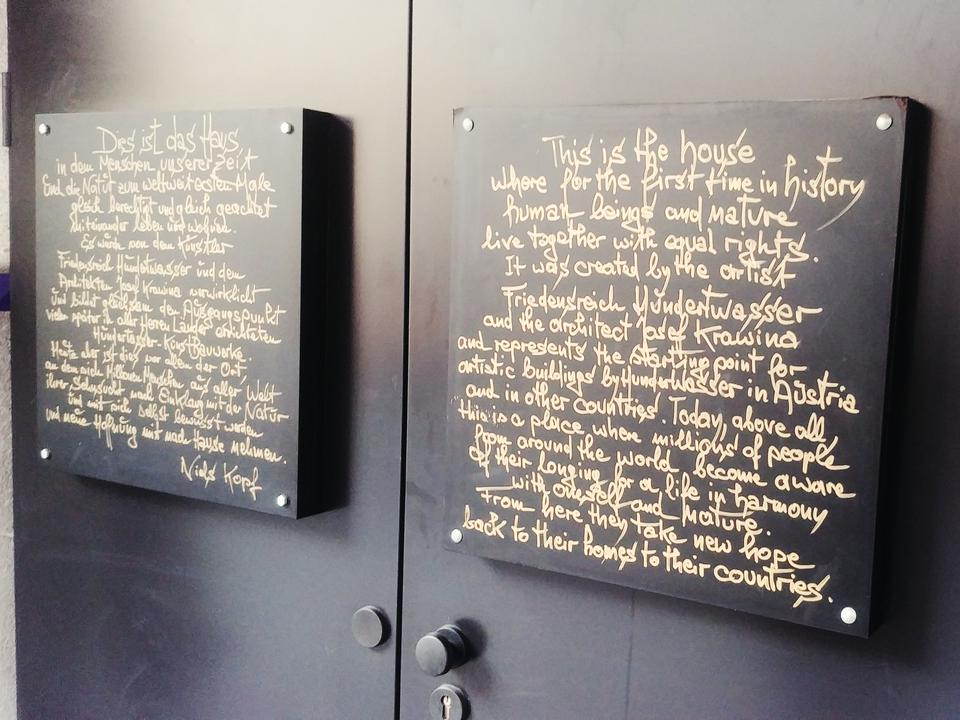 Dies ist das Haus,
in dem Menschen unserer Zeit
und die Natur zum weltweit ersten Male
gleich berechtigt und gleich geachtet
miteinander leben und wohnen.
Es wurde von dem Künstler
Friedensreich Hundertwasser und dem
Architekten Josef Krawina verwirklicht
und bildet gleichsam den Ausgangspunkt
vieler später in aller Herren Länder errichteten
Hundertwasser-Kunst-Bauwerke.
Heute aber ist dies vor allem der Ort,
an dem sich Millionen Menschen aus aller Welt
ihrer Sehnsucht nach Einklang mit der Natur
und mit sich selbst bewusst werden
und neue Hoffnung mit nach Hause nehmen.
Niels Kopf
This is the house
where for the first time in history
human beings and nature
live together with equal rights.
It was created by the artist
Friedensreich Hundertwasser
and the architect Josef Krawina
and represents the starting point for
artistic buildings by Hundertwasser in Austria
and in other countries. Today, above all,
this is a place where millions of people
from around the world become aware
of their longing for a life in harmony
with oneself and nature.
From here they take new hope
back to their homes to their countries.